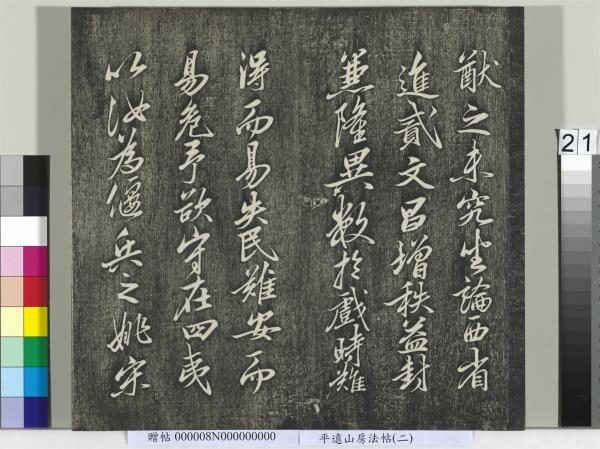 猷之未究坐論西省
進貳文昌增秩益封
蕙隆異數於戲時難
得而易失民難安而
易危予欲守在四夷
以汝為偃兵之姚宋
21
贈帖 000008N000000000 平遠山房法帖(二)